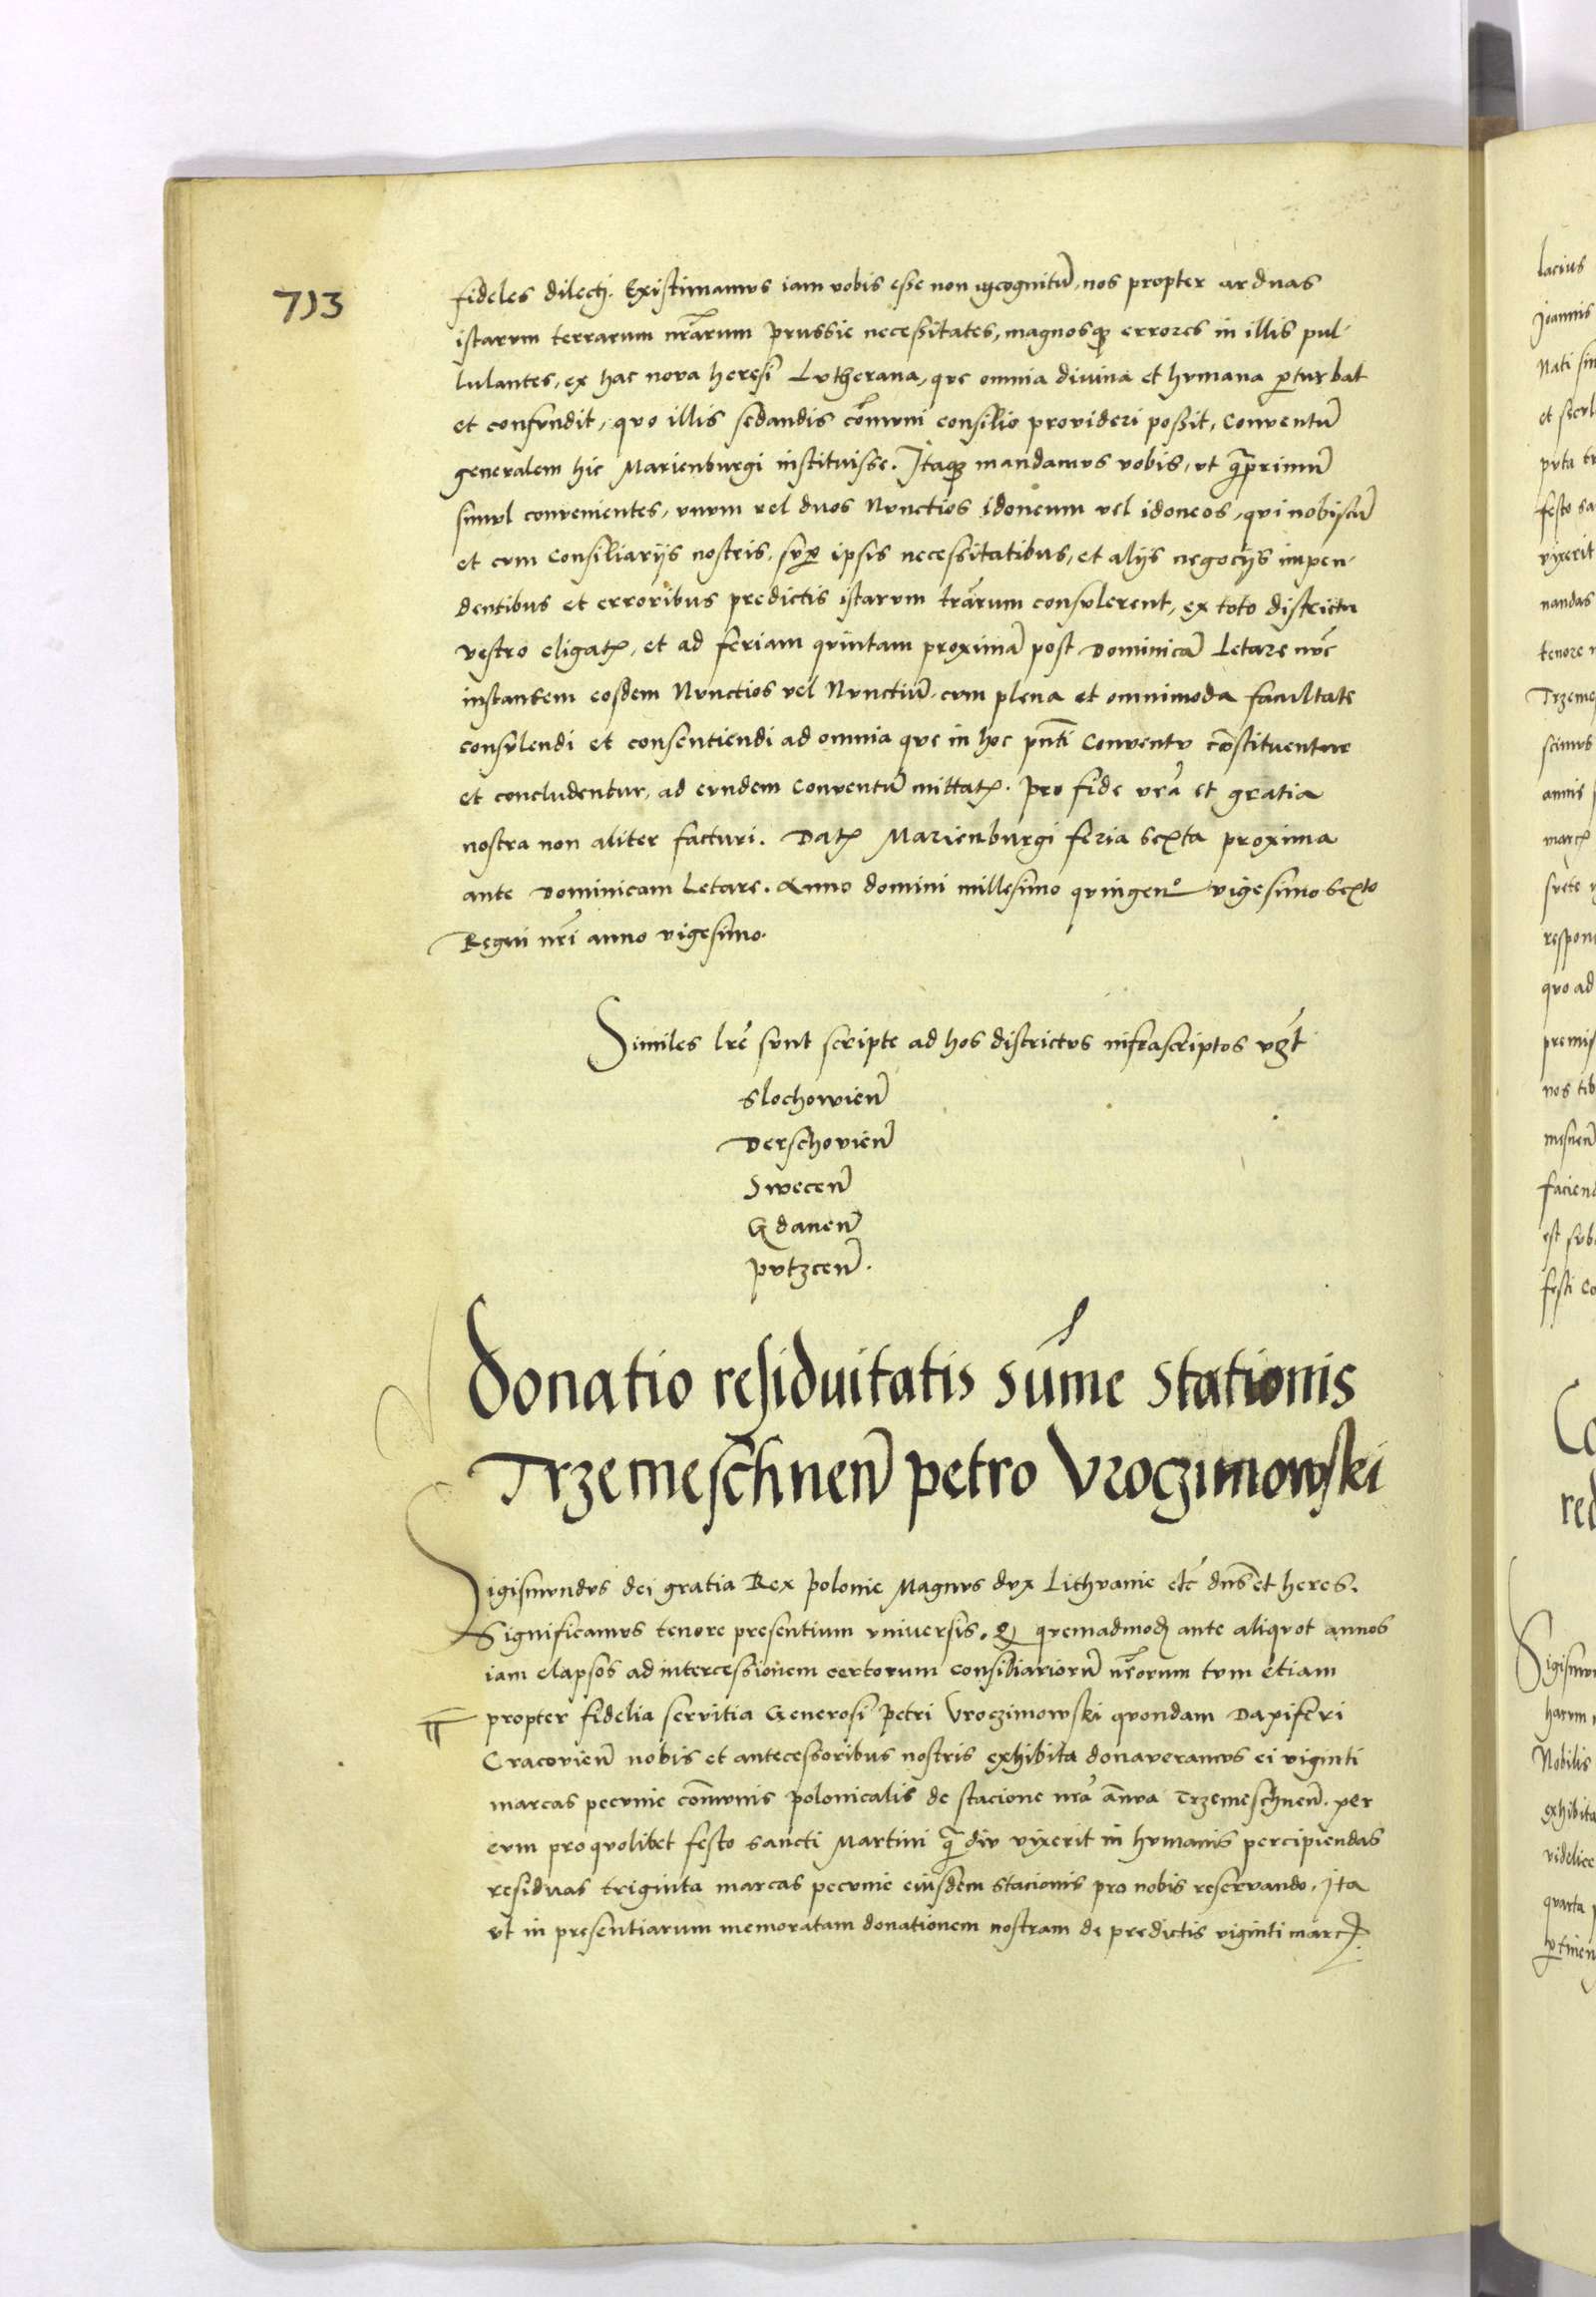 713
fideles dilecti. Existimamus iam vobis esse non incognitū, nos propter arduas
istarum terrarum nr̄arum prussie necessitates, magnosq; errores in illis pul-
lulantes, ex hac nova heresi Lutherana, que omnia divina et humana p̱turbat
et confundit, quo illis sedandis cōmuni consilio provideri possit, Conventū
generalem hic Marienburgi instituisse. Itaq; mandamus vobis, ut q̄primum
simul convenientes, unum vel duos Nunctios idoneum vel idoneos, qui nobiscū
et cum Consiliariis nostris, sup̱ ipsis necessitatibus, et aliis negociis impen-
dentibus et erroribus predictis istarum tr̄arum consulerent, ex toto districtu
vestro eligatꝭ, et ad feriam quintam proximā post Dominicā Letare nūc
instantem eosdem Nunctios vel Nunctiū, cum plena et omnimoda facultate
consulendi et consentiendi ad omnia que in hoc pn̄ti Conventu cōstituentur
et concludentur, ad eundem Conventū mittatꝭ. pro fide vr̄a et gratia
nostra non aliter facturi. Datꝭ Marienburgi feria sexta proxima
ante Dominicam Letare. Anno domini millesimo quingenº vigesimo sexto
Regni nr̄i anno vigesimo.
Similes lr̄e sunt scripte ad hos districtus infrascriptos vꝫt
Slochovien̄
Derschovien̄
Swecen̄
Gdanen̄
putzcen̄.
Donatio residuitatis sūme stationis
Trzemeschnen̄ petro Vroczimowski
Sigismundus dei gratia Rex polonie Magnus dux Lithuanie etc̄ dn̄s et heres.
Significamus tenore presentium universis. Qꝫ quemadmodꝫ ante aliquot annos
iam elapsos ad intercessionem certorum consiliariorū nr̄orum tum etiam
propter fidelia servitia Generosi petri Vroczimowski quondam Dapiferi
Cracovien̄ nobis et antecessoribus nostris exhibita donaveramus ei viginti
marcas pecunie cōmunis polonicalis de stacione nr̄a an̄ua Trzemeschnen̄. per
eum pro quolibet festo sancti Martini q̄ diu vixerit in humanis percipiendas
residuas triginta marcas pecunie eiusdem stacionis pro nobis reservando. Ita
ut in presentiarum memoratam donationem nostram de predictis viginti marcꝭ